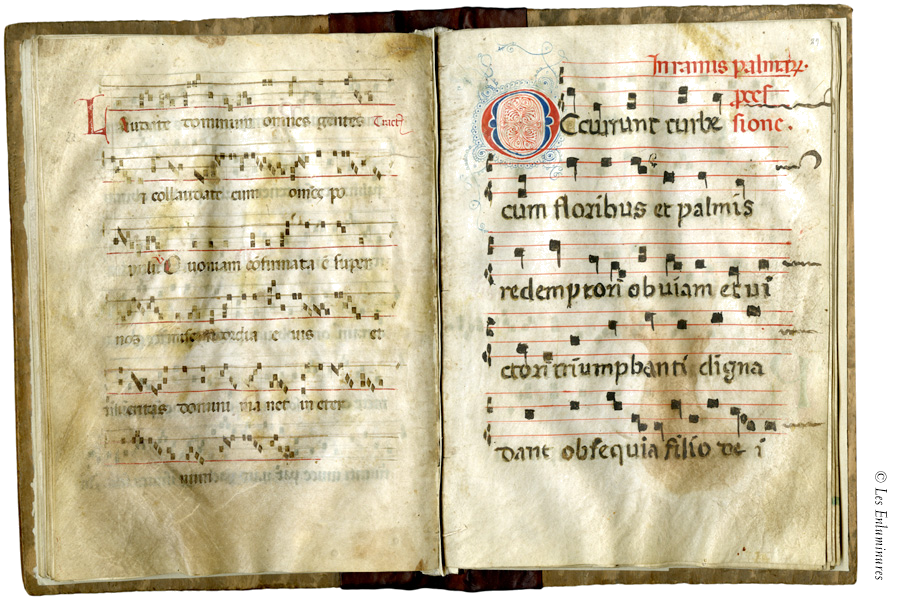 Laudate dominum omnes gentes Tract
et collaudate eum omnes po
puli Quoniam cõfirmata ẽ super
nos misericordia eius et
ueritas domini manet in eter
In ramis palmarum.
proces
Occurrunt turbe sione.
cum floribus et palmis
redemptori obuiam et ui
ctori triumphanti digna
dant obsequia filio de i
© Les Enluminures